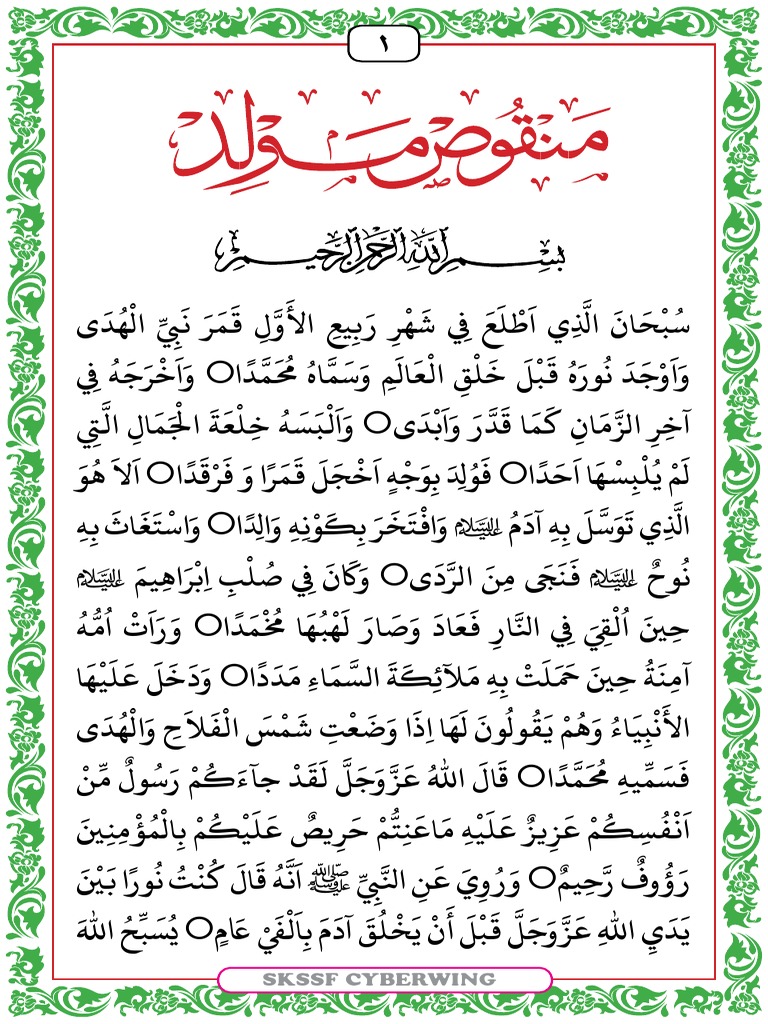 ١
مَنْقُوصْ مَوْلِدْ
بِسْمِ اللهِ الرَّحْمٰنِ الرَّحِيمِ
سُبْحَانَ الَّذِي اَطْلَعَ فِي شَهْرِ رَبِيعِ الأَوَّلِ قَمَرَ نَبِيِّ الْهُدَى
وَاَوْجَدَ نُورَهُ قَبْلَ خَلْقِ الْعَالَمِ وَسَمَّاهُ مُحَمَّدًا○ وَاَخْرَجَهُ فِي
آخِرِ الزَّمَانِ كَمَا قَدَّرَ وَاَبْدَى○ وَاَلْبَسَهُ خِلْعَةَ الْجَمَالِ الَّتِي
لَمْ يُلْبِسْهَا اَحَدًا○ فَوُلِدَ بِوَجْهٍ اَخْجَلَ قَمَرًا وَ فَرْقَدًا○ اَلاَ هُوَ
الَّذِي تَوَسَّلَ بِهِ آدَمُ عليه السلام وَافْتَخَرَ بِكَوْنِهِ وَالِدًا○ وَاسْتَغَاثَ بِهِ
نُوحٌ عليه السلام فَنَجَى مِنَ الرَّدَى○ وَكَانَ فِي صُلْبِ اِبْرَاهِيمَ عليه السلام
حِينَ اُلْقِيَ فِي النَّارِ فَعَادَ وَصَارَ لَهْبُهَا مُخْمَدًا○ وَرَاَتْ اُمُّهُ
آمِنَةُ حِينَ حَمَلَتْ بِهِ مَلآئِكَةَ السَّمَاءِ مَدَدًا○ وَدَخَلَ عَلَيْهَا
الأَنْبِيَاءُ وَهُمْ يَقُولُونَ لَهَا اِذَا وَضَعْتِ شَمْسَ الْفَلاَحِ وَالْهُدَى
فَسَمِّيهِ مُحَمَّدًا○ قَالَ اللهُ عَزَّوَجَلَّ لَقَدْ جآءَكُمْ رَسُولٌ مِّنْ
اَنْفُسِكُمْ عَزِيزٌ عَلَيْهِ مَاعَنِتُّمْ حَرِيصٌ عَلَيْكُمْ بِالْمُؤْمِنِينَ
رَؤُوفٌ رَّحِيمٌ○ وَرُوِيَ عَنِ النَّبِيِّ ﷺ اَنَّهُ قَالَ كُنْتُ نُورًا بَيْنَ
يَدَيِ اللهِ عَزَّوَجَلَّ قَبْلَ أَنْ يَخْلُقَ آدَمَ بِاَلْفَيْ عَامٍ○ يُسَبِّحُ اللهَ
SKSSF CYBERWING